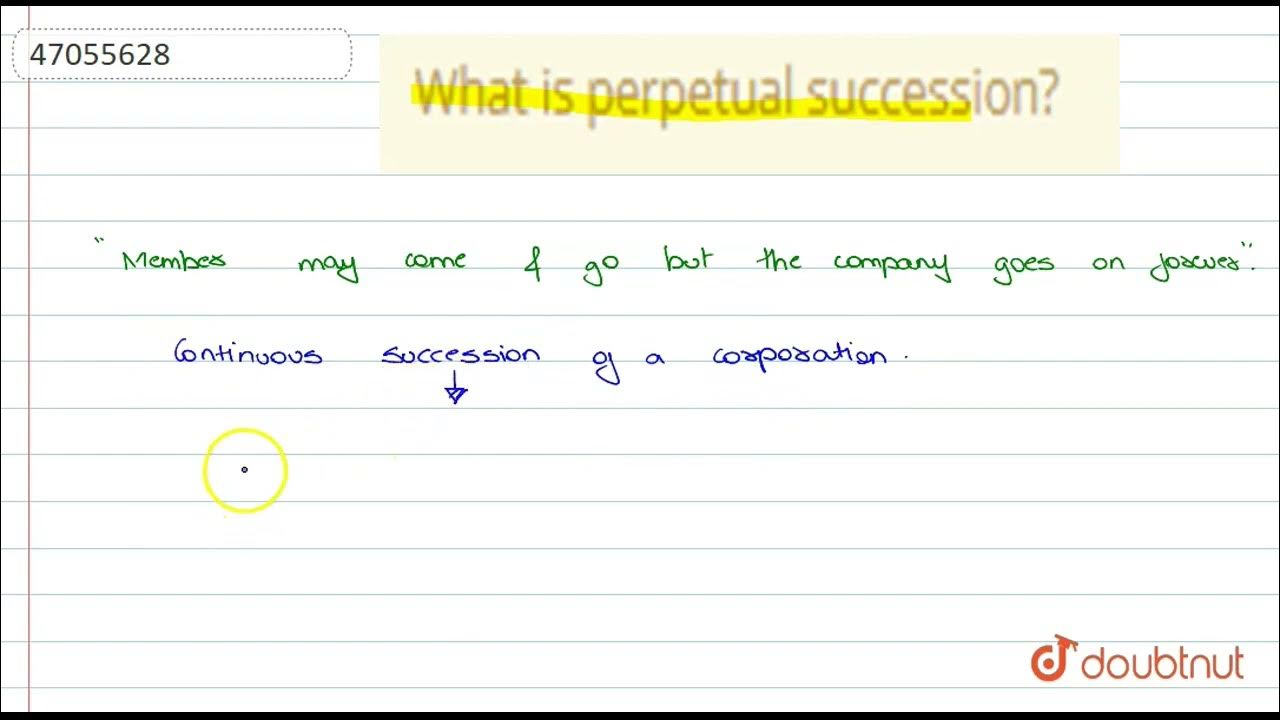 47055628
What is perpetual succession?
"Member may come & go but the company goes on forever".
Continuous succession of a corporation.
doubtnut